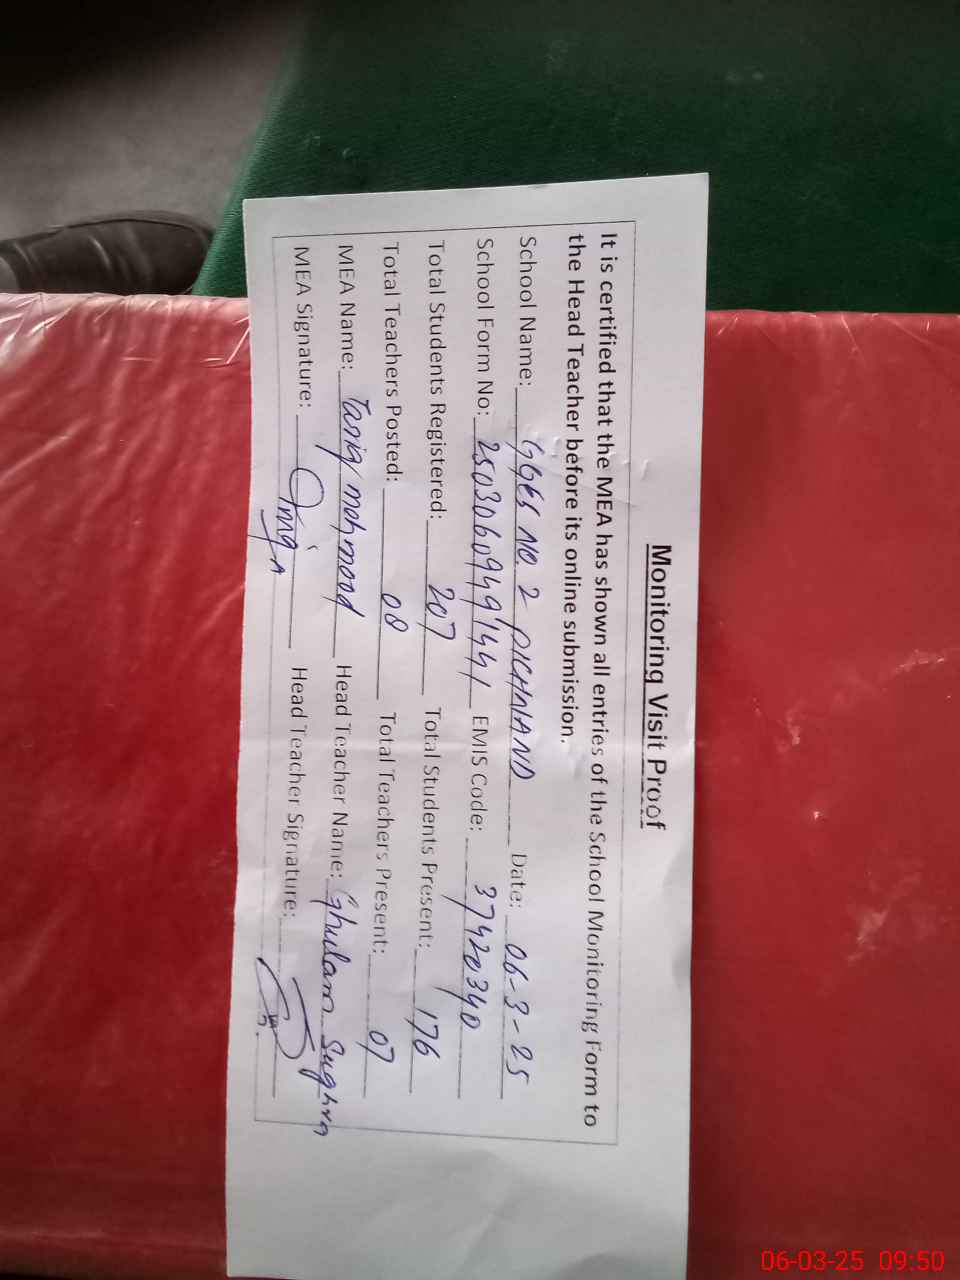 Monitoring Visit Proof
It is certified that the MEA has shown all entries of the School Monitoring Form to
the Head Teacher before its online submission.
School Name: GGES NO. 2 PICHNAND Date: 06-3-25
School Form No: 25030609491441 EMIS Code: 37420340
Total Students Registered: 207 Total Students Present: 176
Total Teachers Posted: 08 Total Teachers Present: 07
MEA Name: Tariq mahmood Head Teacher Name: Ghulam Sughra
MEA Signature: Head Teacher Signature:
06-03-25 09:50